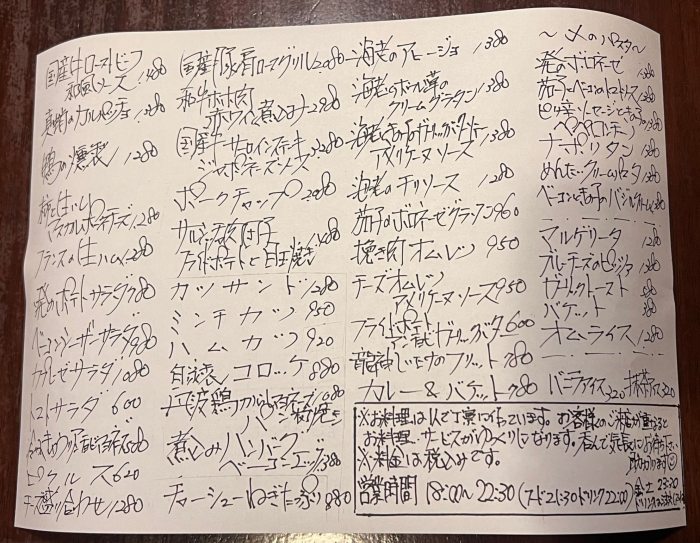 国産牛ローストビーフ
和風ソース 1480
真鯛のカルパッチョ 1380
1280
柿と生ハム
マスカルポーネチーズ 1280
フランスの生ハム 1280
発酵ポテトサラダ 780
ベーコンシーザーサラダ 980
カプレーゼサラダ 1080
トマトサラダ 600
ピクルス 620
チーズ盛り合わせ 1280
国産豚肩ロースグリル 2080
和牛ホホ肉
赤ワイン煮込み 2980
国産牛サーロインステーキ
ジャポネーズソース 3280
ポークチャップ
フライドポテトと目玉焼き
カツサンド 1280
ミンチカツ 950
ハムカツ 920
自家製コロッケ 880
丹波鶏
煮込みハンバーグ
ベーコンエッグ 1380
チャーシューねぎたっぷり 880
海老のアヒージョ 1380
海老とホーレン草の
クリームグラタン 1380
海老ときのこのガーリックバター
アメリケーヌソース 1380
海老のチリソース 1280
茄子のボロネーゼグラタン 960
挽き肉オムレツ 950
チーズオムレツ
アメリケーヌソース 950
フライドポテト
アンチョビガーリックバター 600
龍神しいたけのフリット 780
カレー&バケット 780
〜〆のパスタ〜
発酵ボロネーゼ
茄子とベーコンのトマトソース 1380
ピリ辛ソーセージときのこの
ペペロンチーノ 1380
ナポリタン 1380
めんたいクリームパスタ 1380
ベーコンときのこのバジルクリーム 1380
マルゲリータ 1280
ブルーチーズのピッツァ 1280
ガーリックトースト 580
バケット 380
オムライス 1280
バニラアイス 320 抹茶アイス 320
※お料理は1人で丁寧に作っています。お客様のご来店が重なると
お料理・サービスがゆっくりになります。呑んで気長にお待ち下さい
助かります
※料金は税込みです。
営業時間 18:00〜22:30(フード21:30ドリンク22:00)金土23:30